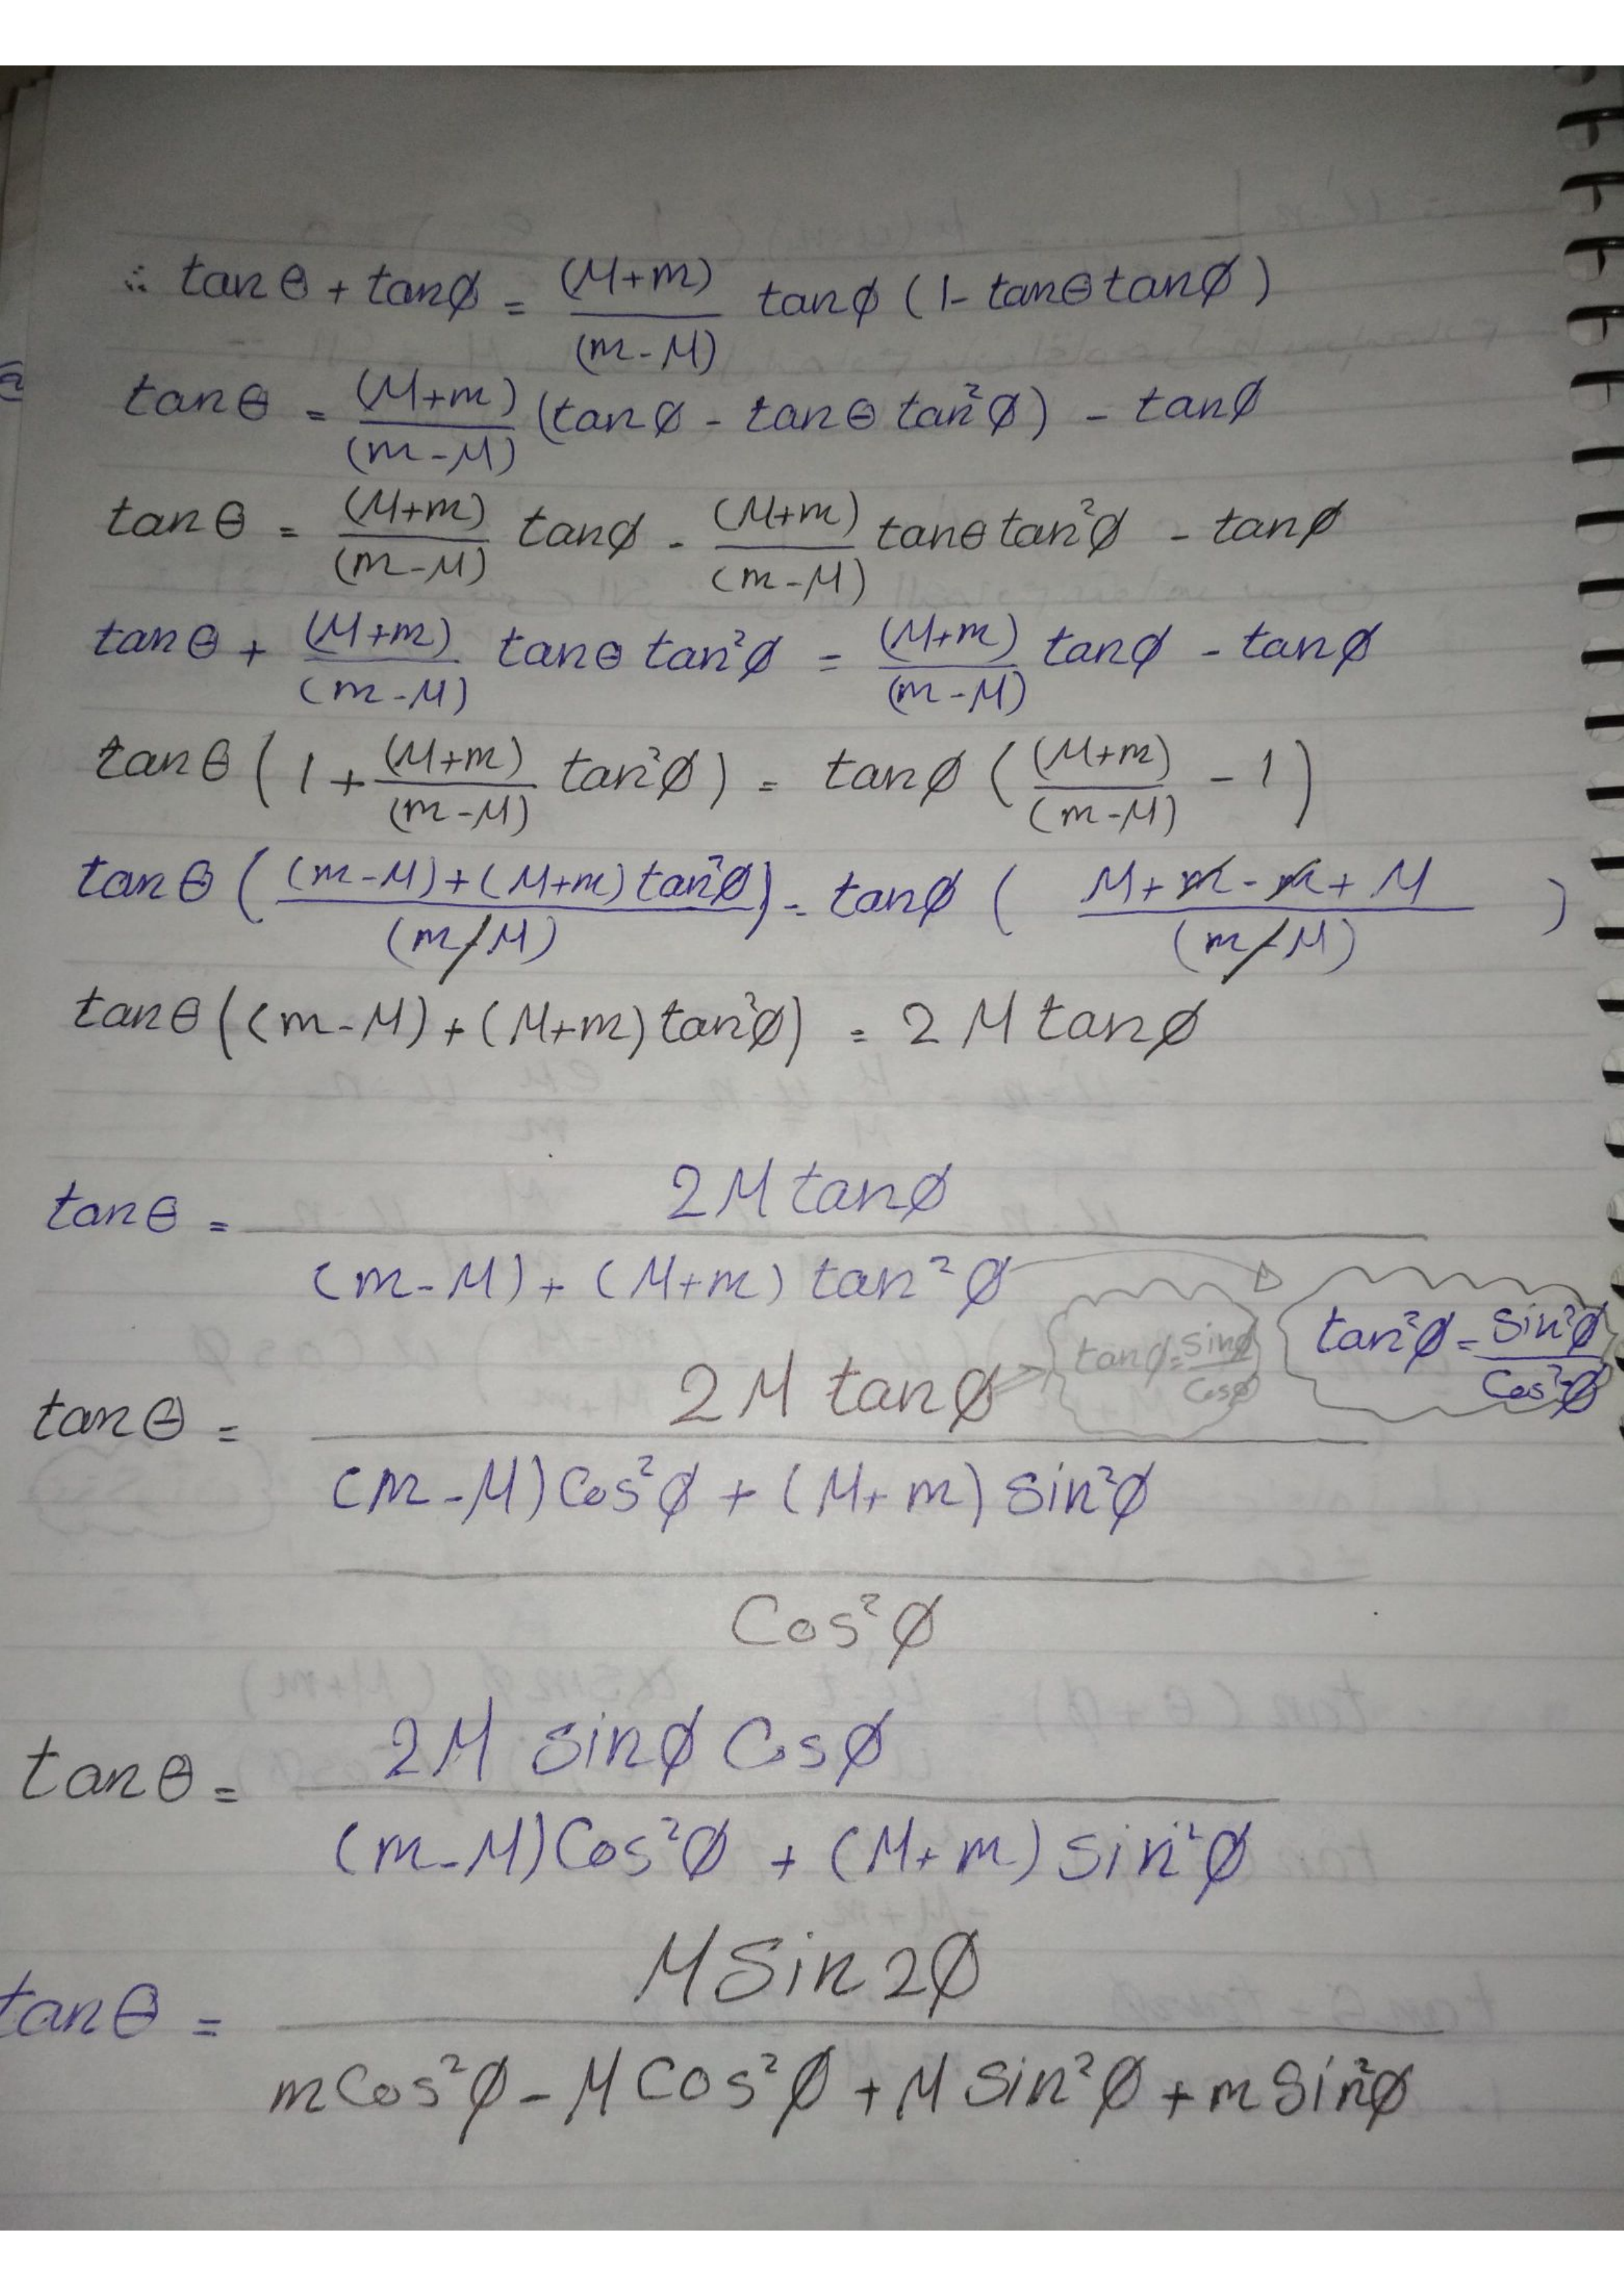 ∴ tanθ + tanø = (M+m)/(m-M) tanø (1- tanθ tanø)
tanθ = (M+m)/(m-M) (tanø - tanθ tan²ø) - tanø
tanθ = (M+m)/(m-M) tanø - (M+m)/(m-M) tanθ tan²ø - tanø
tanθ + (M+m)/(m-M) tanθ tan²ø = (M+m)/(m-M) tanø - tanø
tanθ (1 + (M+m)/(m-M) tan²ø) = tanø ((M+m)/(m-M) - 1)
tanθ (((m-M)+(M+m) tan²ø)/(m-M)) = tanø ((M+m-m+M)/(m-M))
tanθ ((m-M)+(M+m) tan²ø) = 2M tanø
tanθ = 2M tanø / ((m-M)+(M+m) tan²ø)
tan²ø = Sin²ø/Cos²ø
tanø = Sinø/Cosø
tanθ = 2M tanø / (((m-M)Cos²ø + (M+m) Sin²ø) / Cos²ø)
tanθ = 2M Sinø Cosø / ((m-M)Cos²ø + (M+m) Sin²ø)
tanθ = M Sin2ø / (mCos²ø - MCos²ø + M Sin²ø + m Sin²ø)